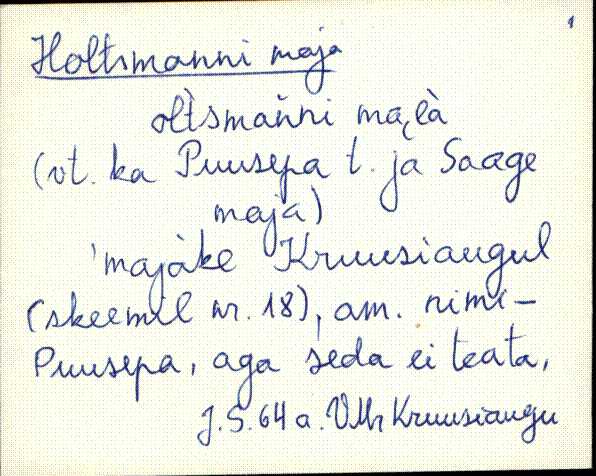 1
Holtsmanni maja
oĺt̀smańni ma̭i̭à
(vt. ka Puusepa t. ja Saage
maja)
'majàke Kruusiaugul
(skeemil nr. 18), am. nimi –
Puusepa, aga seda ei teata,
J.S. 64 a. VMr Kruusiaugu